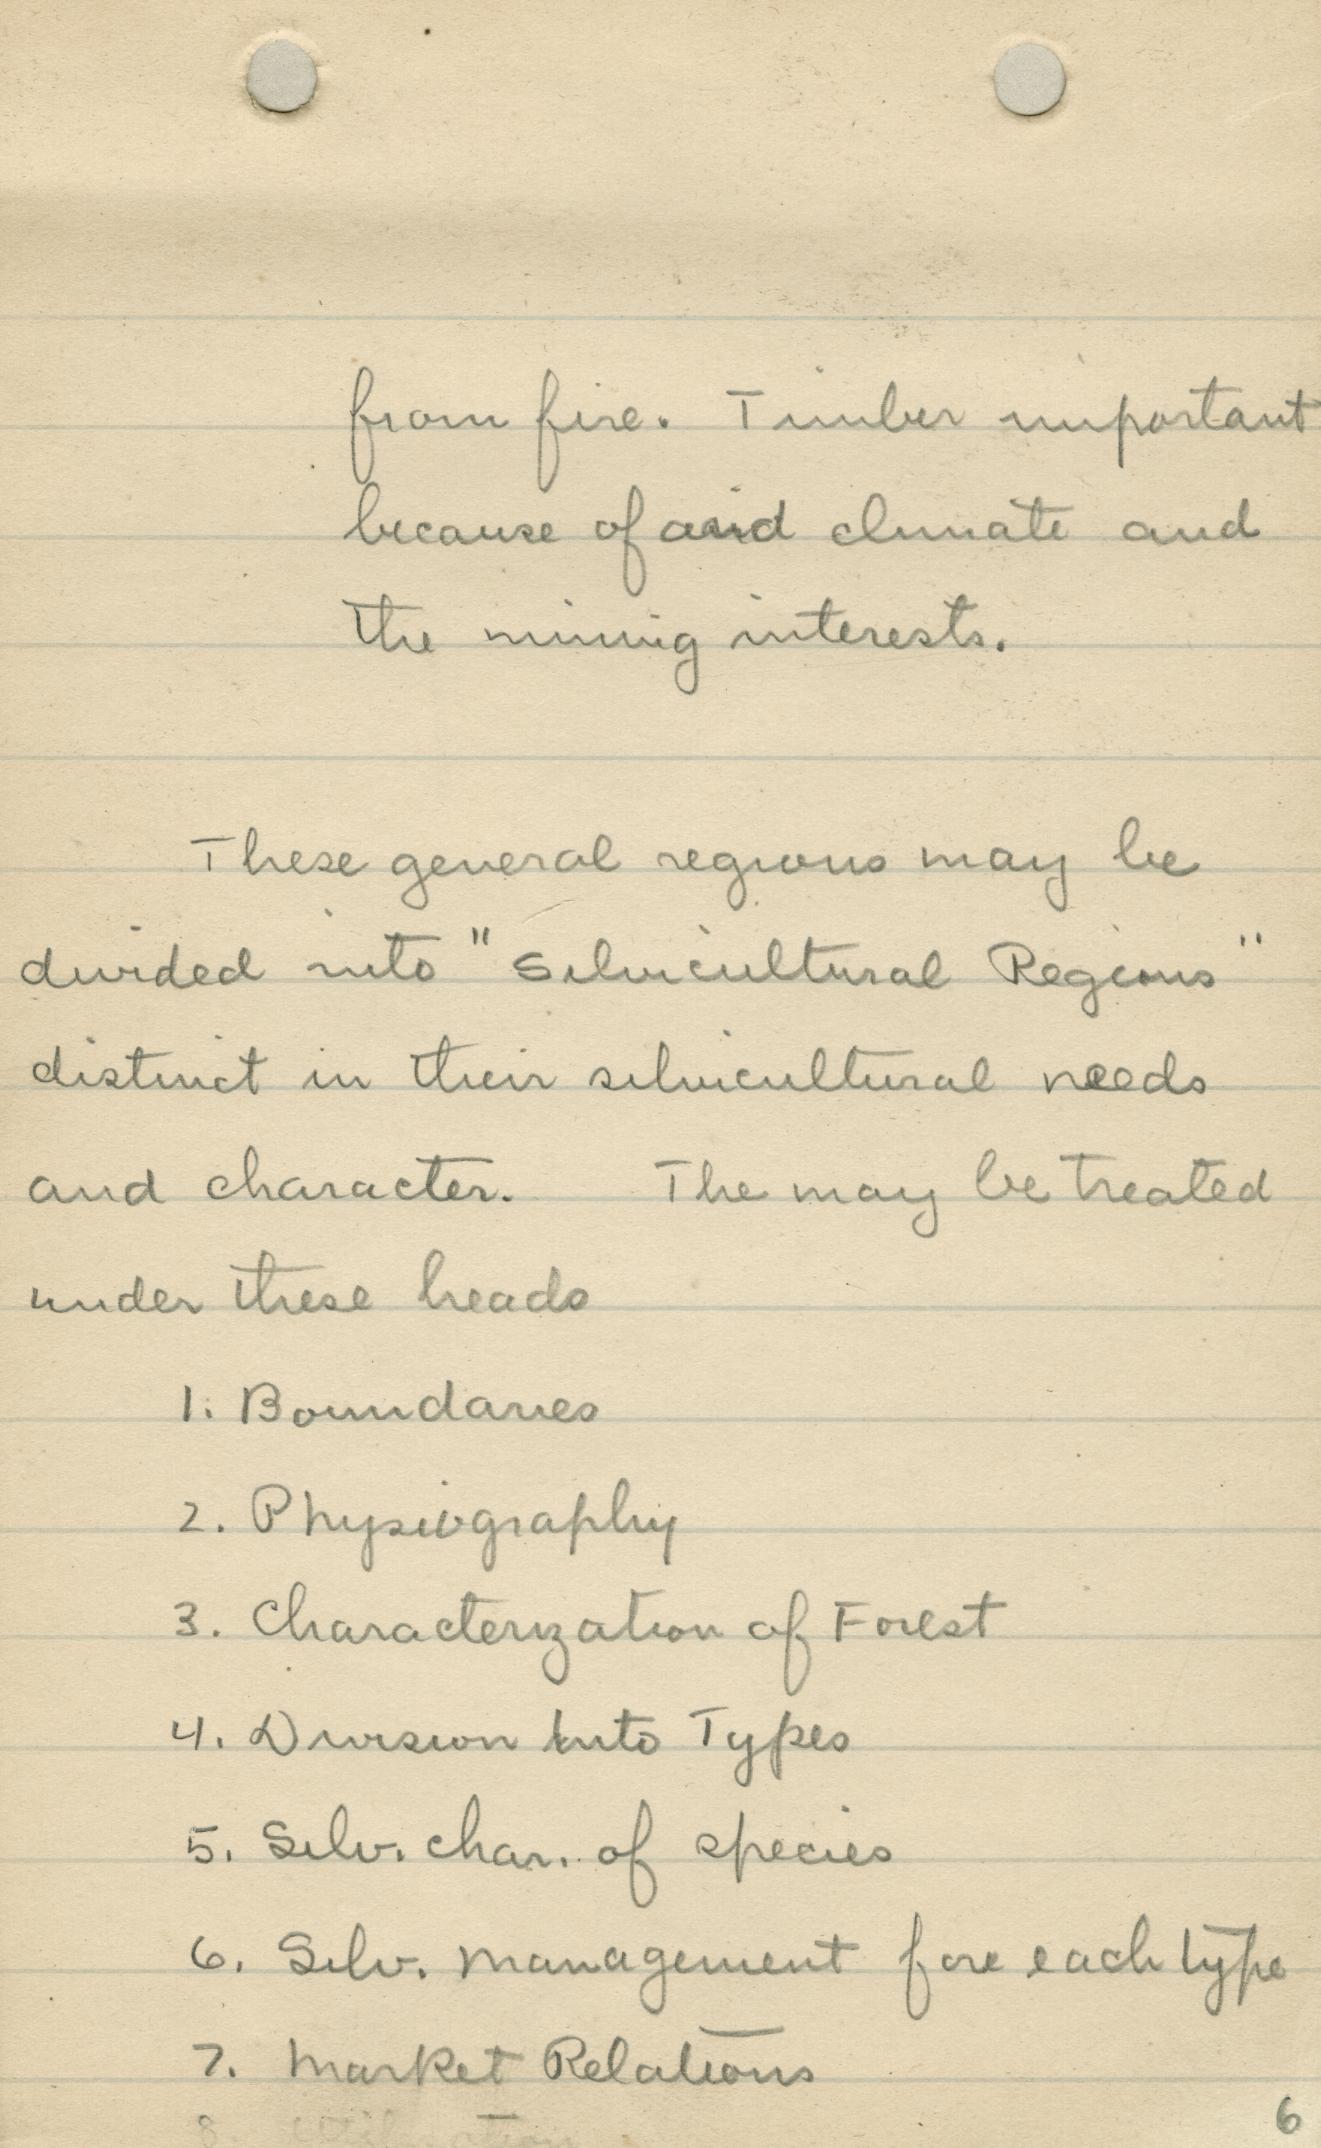 from fire. Timber important
because of arid climate and
the mining interests.
These general regions may be
divided into "Silvicultural Regions"
distinct in their silvicultural needs
and character. The may be treated
under these heads
1. Boundaries
2. Physiography
3. Characterization of Forest
4. Division Into Types
5. Silv. char. of species
6. Silv. Management fore each type
7. Market Relations
8. Utilization
6